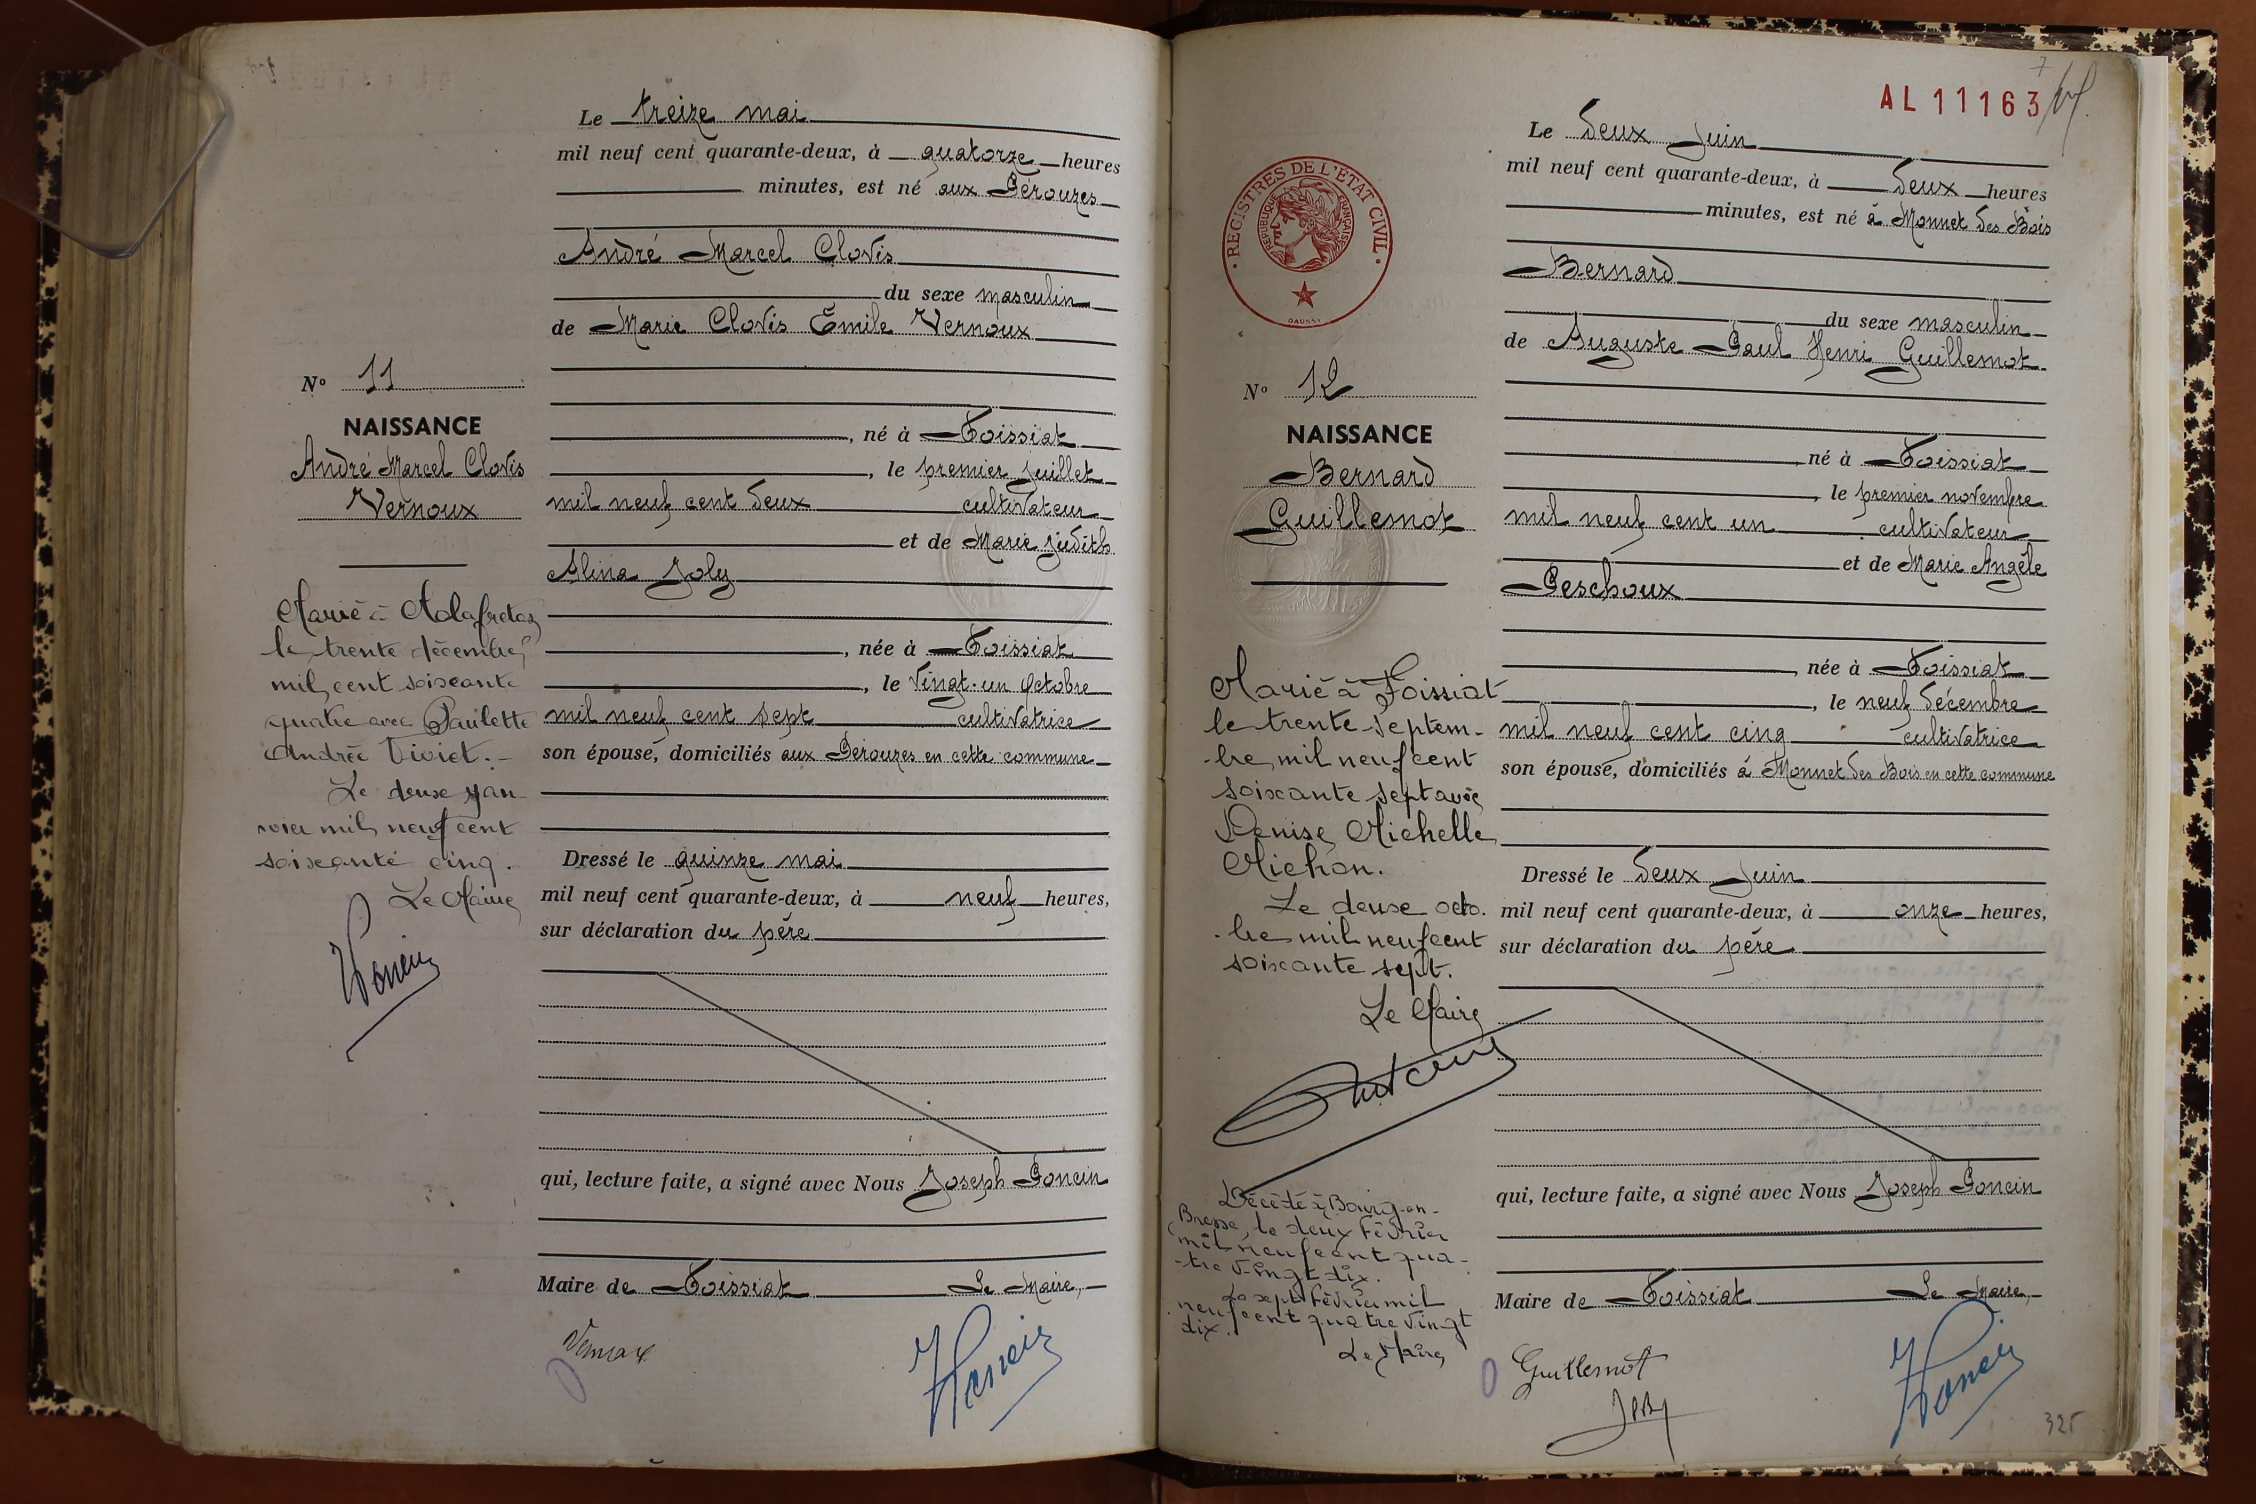 Le treize mai
mil neuf cent quarante-deux, à quatorze heures
minutes, est né aux Pérouzes
André Marcel Clovis
du sexe masculin
de Marie Clovis Émile Vernoux
né à Foissiat
, le premier juillet
mil neuf cent deux cultivateur
et de Marie Judith
Alina Joly
, née à Foissiat
, le vingt-un octobre
mil neuf cent sept cultivatrice
son épouse, domiciliés aux Pérouzes en cette commune
Dressé le quinze mai
mil neuf cent quarante-deux, à neuf heures,
sur déclaration du père
qui, lecture faite, a signé avec Nous Joseph Poncin
Maire de Foissiat Le Maire,
Nº 11
NAISSANCE
André Marcel Clovis
Vernoux
Marié à Malafretaz
le trente décembre
mil cent soixante
quatre avec Paulette
Andrée Viviet.
Le deux jan
vier mil neuf cent
soixante cinq.
Le Maire
Poncin
Vernoux
Poncin
AL 11163
7
Le deux Juin
mil neuf cent quarante-deux, à deux heures
minutes, est né à Monnet des Bois
Bernard
du sexe masculin
de Auguste Paul Henri Guillemot
né à Foissiat
, le premier novembre
mil neuf cent un cultivateur
et de Marie Angèle
Peschoux
née à Foissiat
, le neuf décembre
mil neuf cent cinq cultivatrice
son épouse, domiciliés à Monnet des Bois en cette commune
Dressé le deux Juin
mil neuf cent quarante-deux, à onze heures,
sur déclaration du père
qui, lecture faite, a signé avec Nous Joseph Poncin
Maire de Foissiat Le Maire,
REGISTRES DE L'ETAT CIVIL
REPUBLIQUE FRANÇAISE
Nº 12
NAISSANCE
Bernard
Guillemot
Marié à Foissiat
le trente septem-
bre mil neuf cent
soixante sept avec
Denise Michelle
Michon.
Le deux octo.
bre mil neuf cent
soixante sept.
Le Maire
Décédé à Bourg-en-
Bresse, le deux Février
mil neuf cent qua-
tre vingt dix.
Le sept Février mil
neuf cent quatre vingt
dix.
Le Maire
Guillemot
Poncin
325